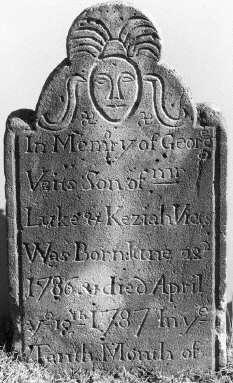 In Memory of George
Vaits Son of mr
Luke & Keziah Viets
Was Born June 22d
1786 & died April
ye 19th 1787 In ye
Tenth Month of